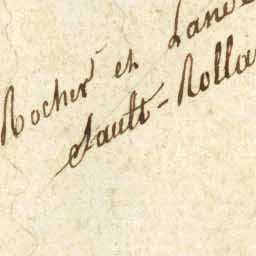 Rocher et Lande
Sault-Rolla